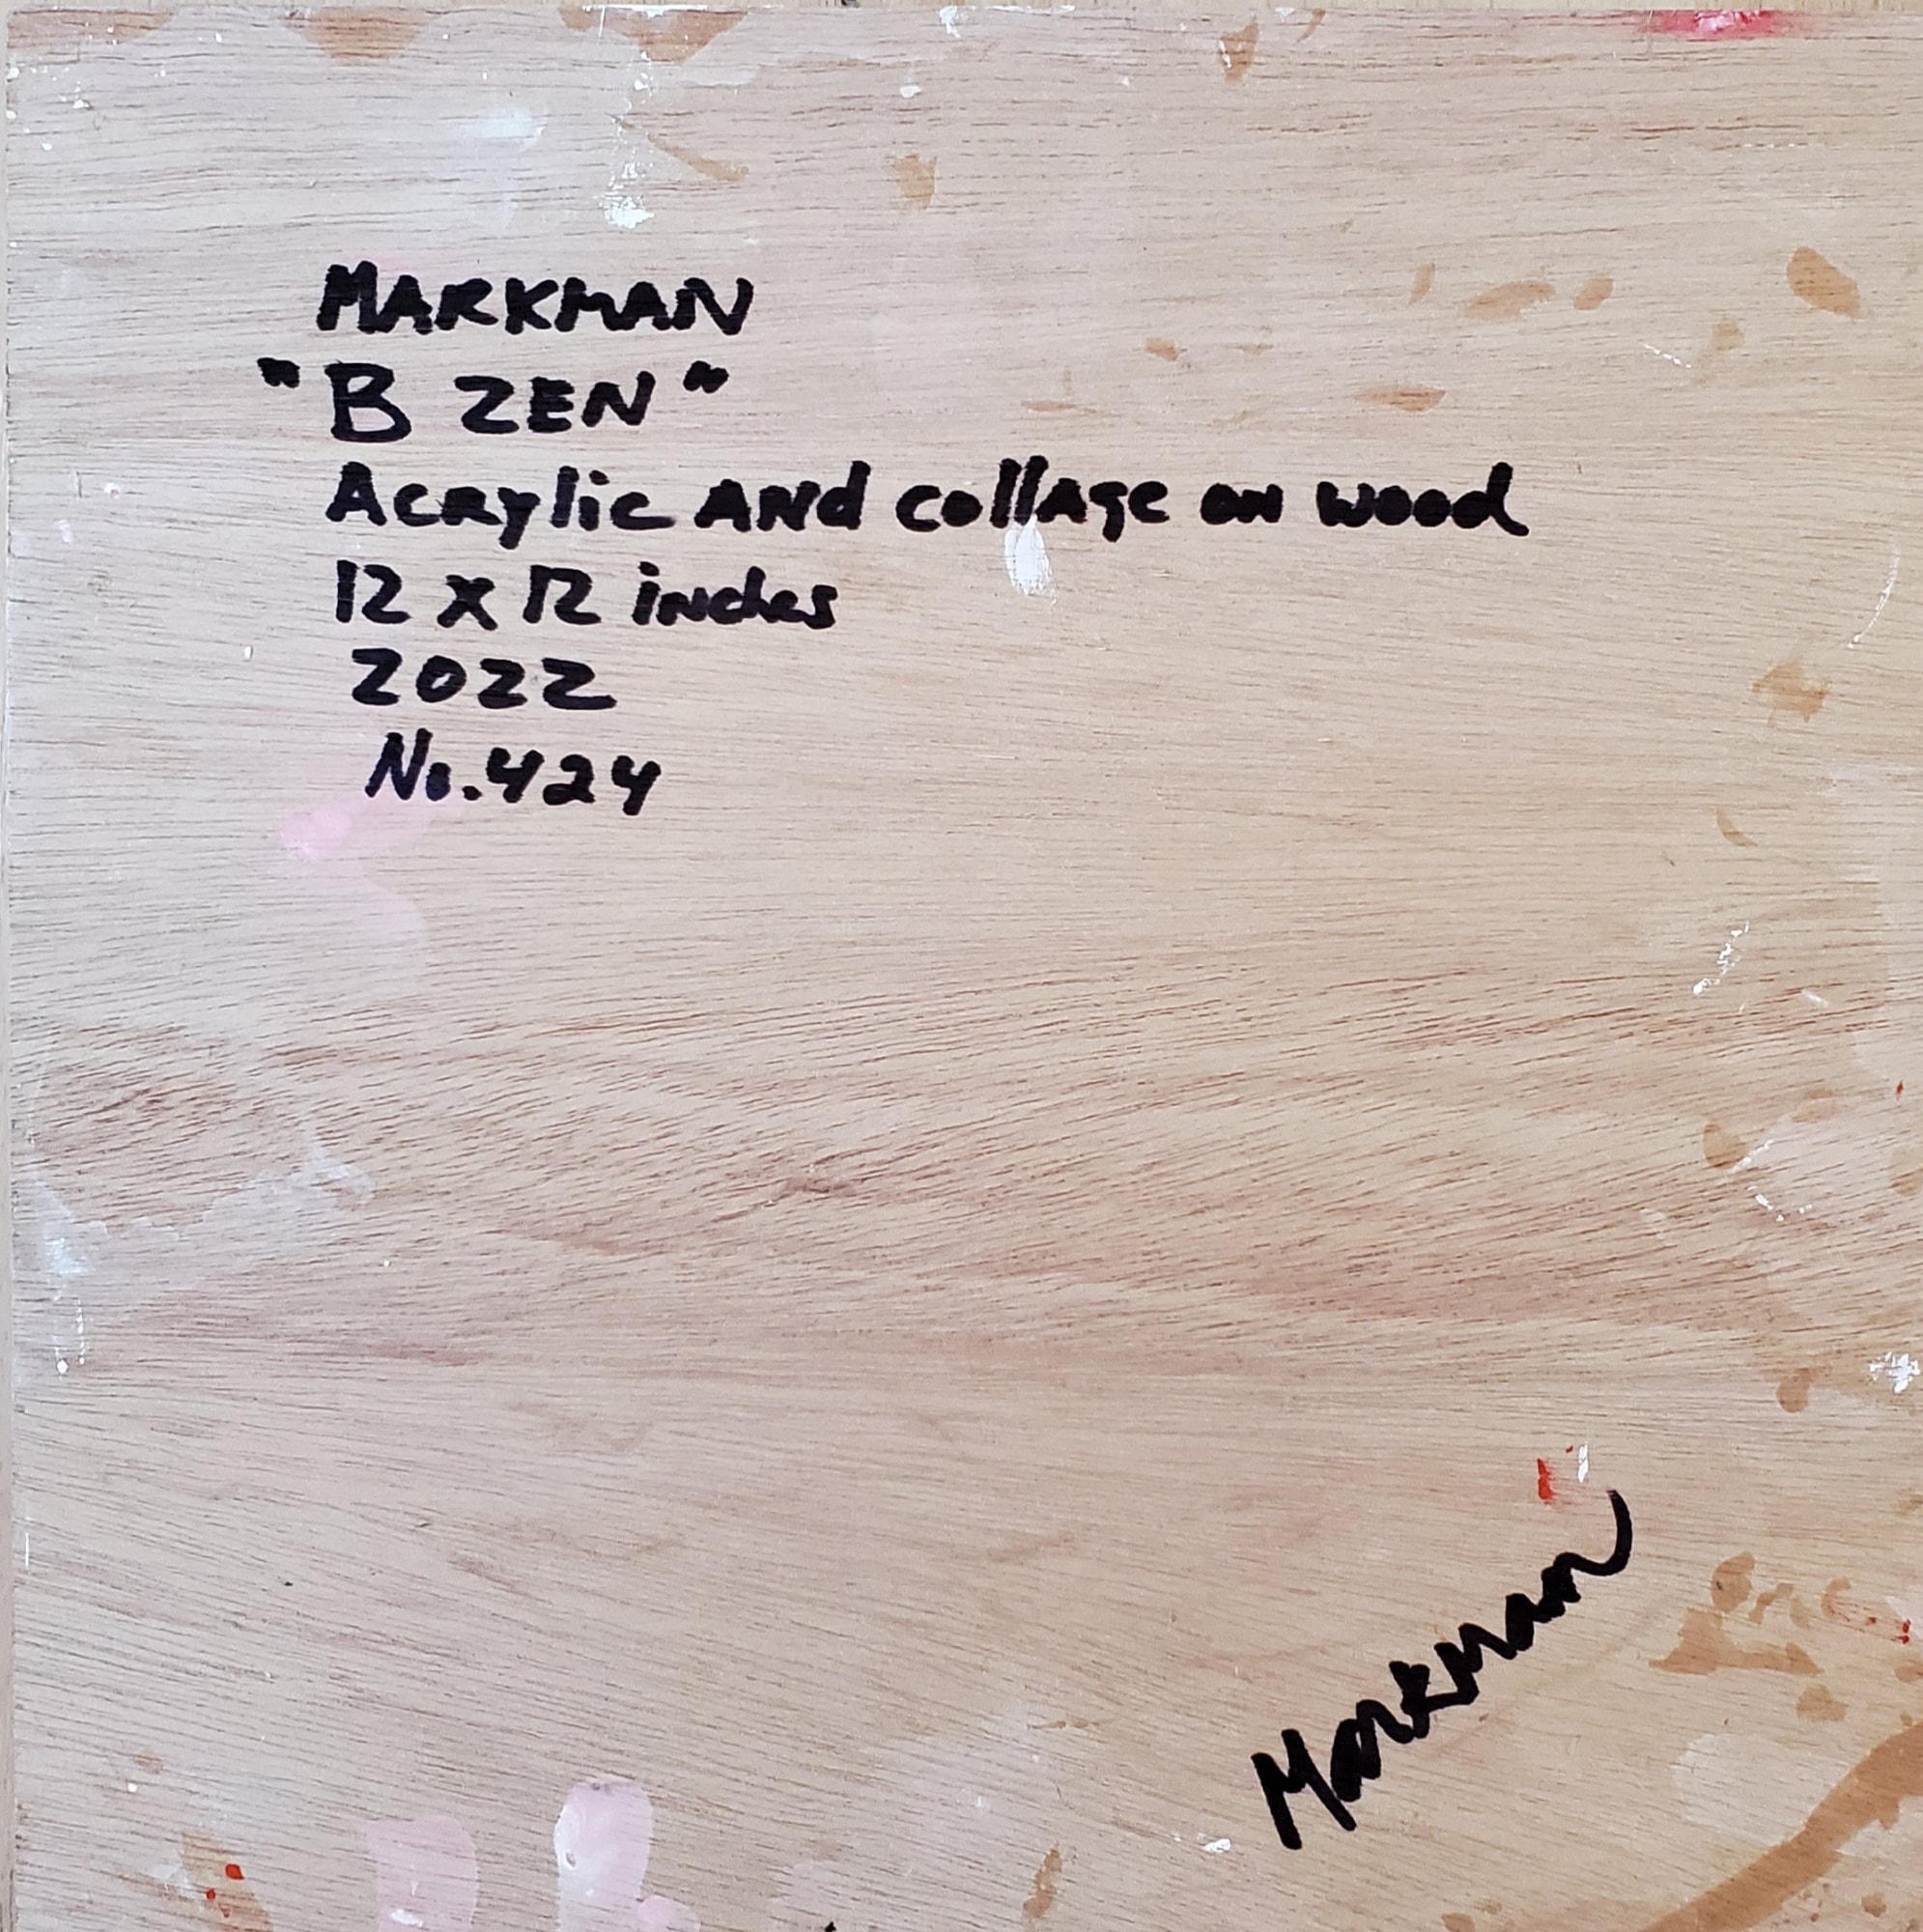 MARKMAN
"B ZEN"
Acrylic AND collAge on wood
12 x 12 inches
2022
No. 424
Markman